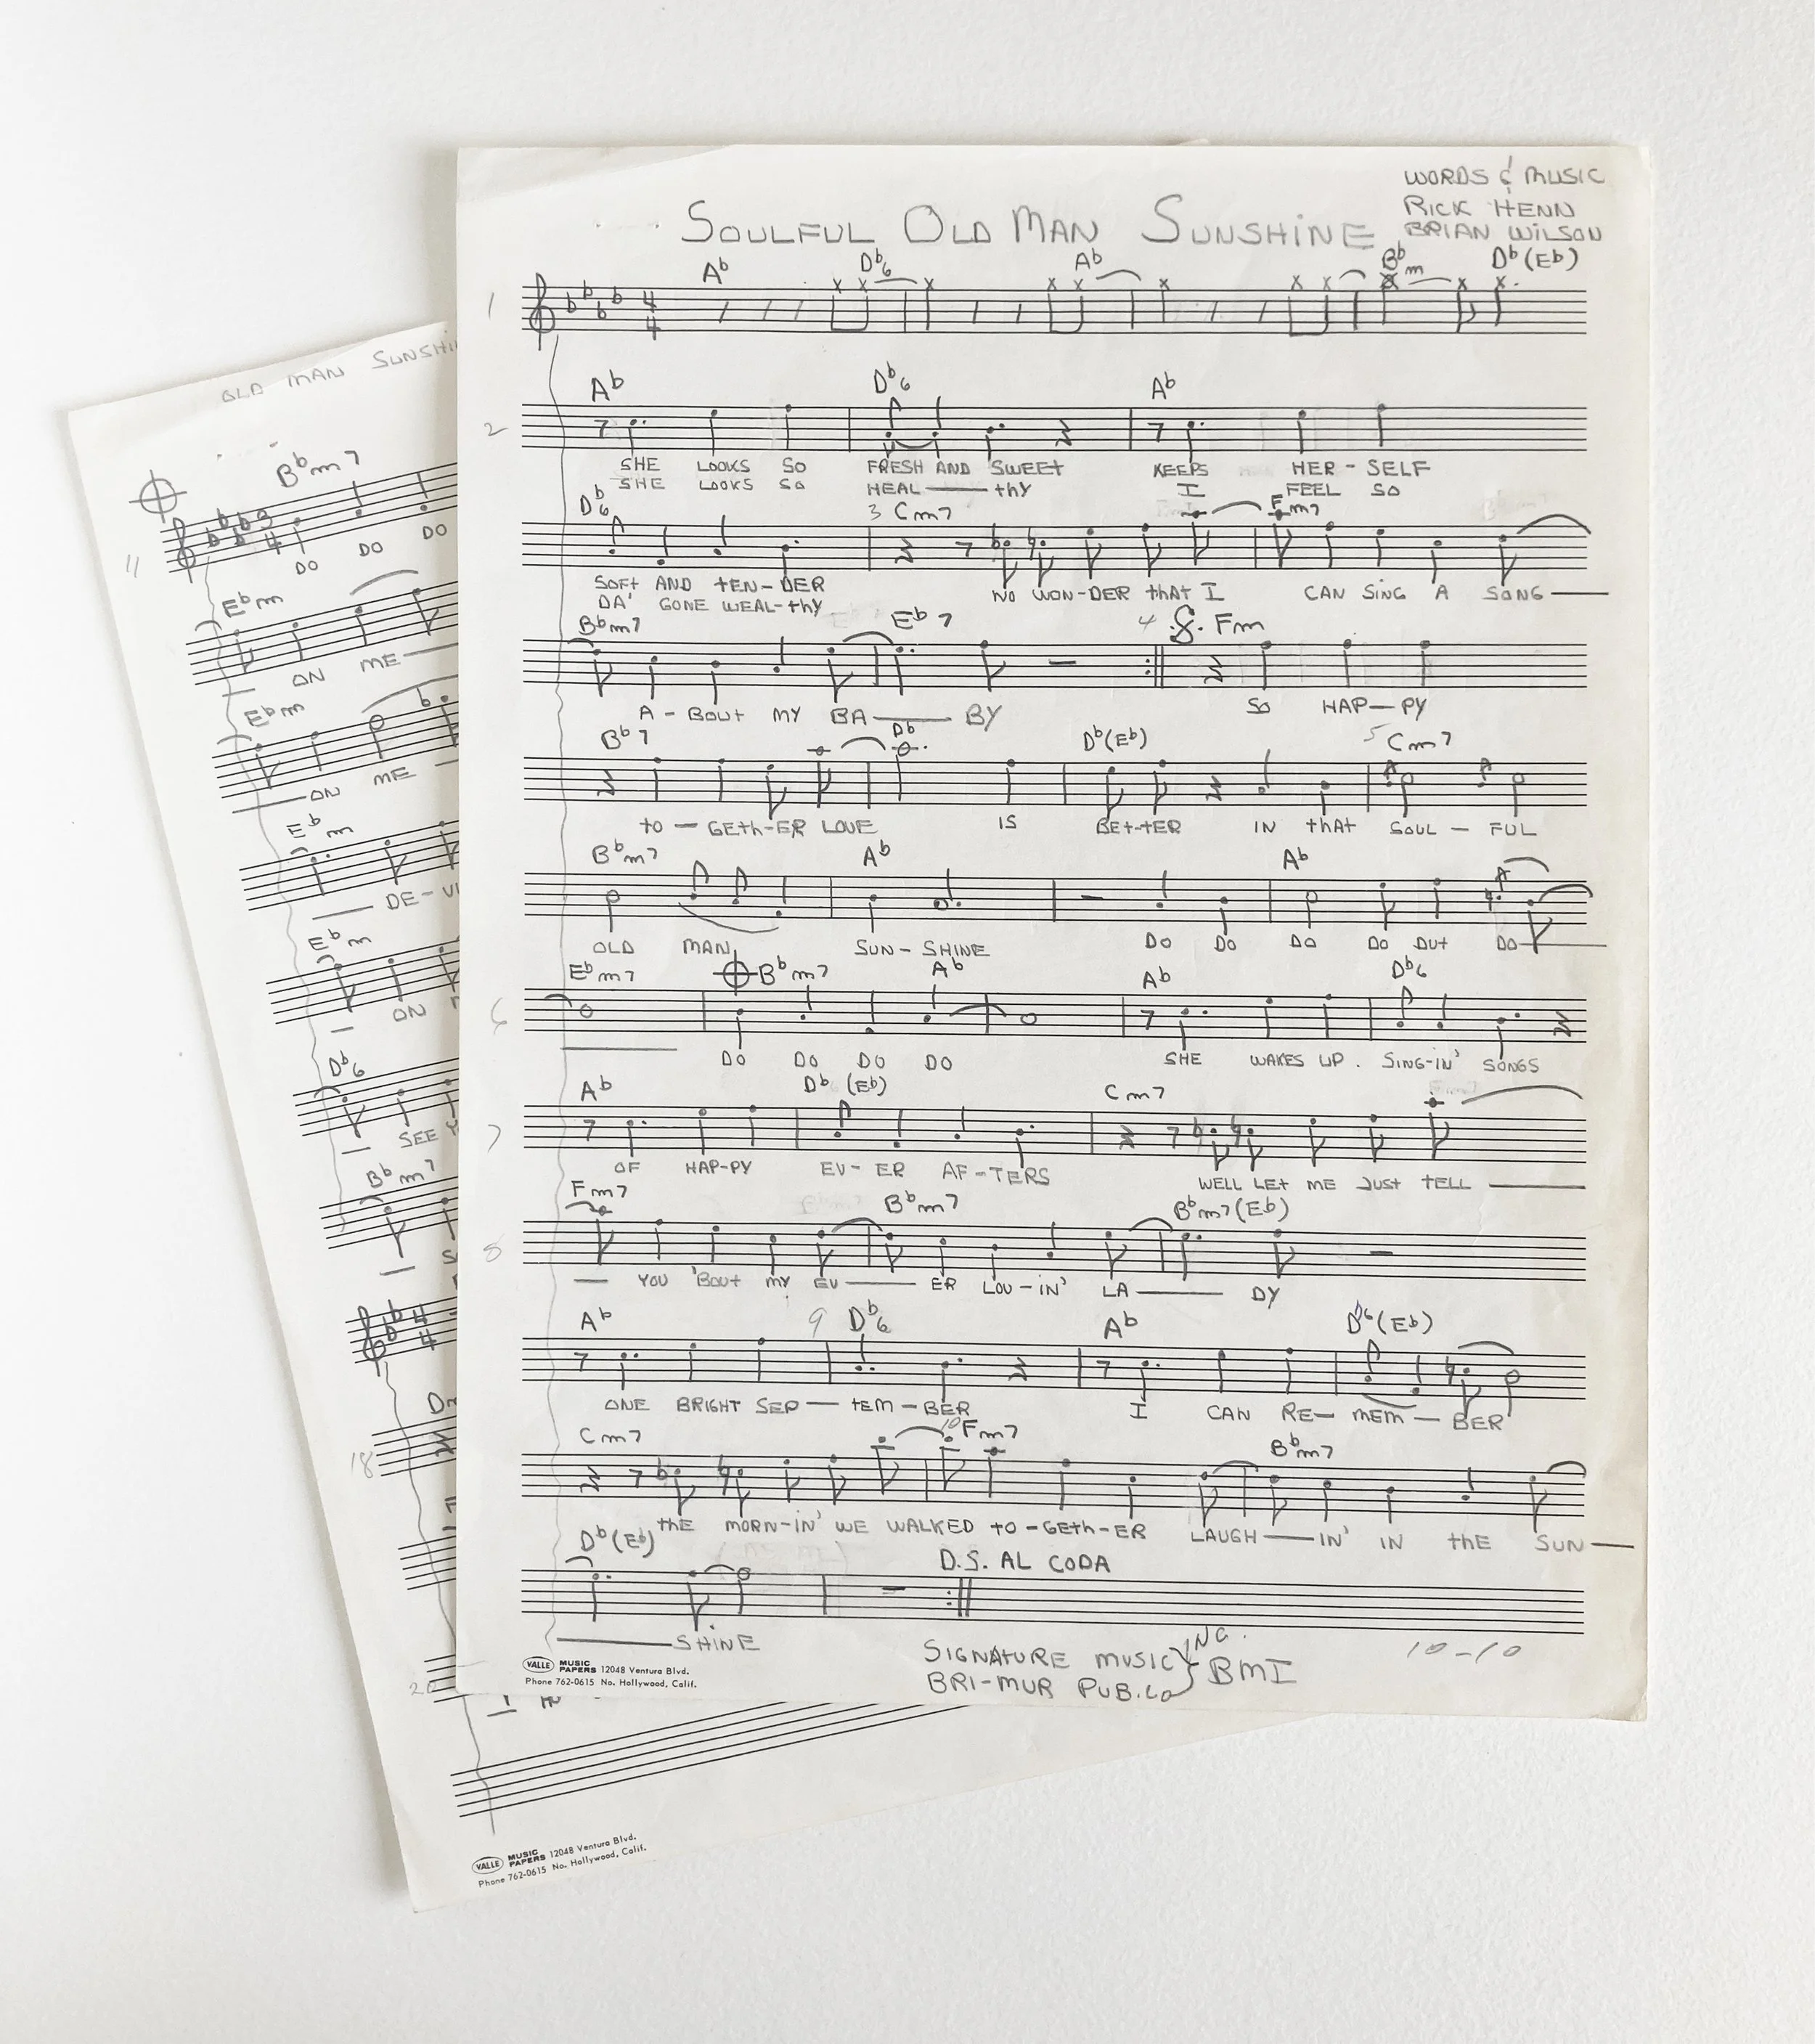 WORDS & MUSIC
RICK HENN
BRIAN WILSON
SOULFUL OLD MAN SUNSHINE
Ab Db6 Ab Bbm Db(Eb)
1
4 4
Ab Db6 Ab
2
SHE LOOKS SO FRESH AND SWEET KEEPS HER - SELF
SHE LOOKS SO HEAL — thY I FEEL SO
Db6 3 Cm7 Fm7
SOFt AND tEN-DER NO WON-DER thAt I CAN SING A SONG —
DA' GONE WEAL-thY
Bbm7 Eb7 4 Fm
A - BOUt MY BA — BY SO HAP — PY
Bb7 Db Db(Eb) 5 Cm7
tO — GEth-ER LOVE IS BEt-tER IN thAt SOUL — FUL
Bbm7 Ab Ab
OLD MAN SUN - SHINE DO DO DO DO DUt DO —
Ebm7 Bbm7 Ab Ab Db6
6
DO DO DO DO SHE WAKES UP. SING-IN' SONGS
Ab Db (Eb) Cm7
7
OF HAP-PY EV- ER AF-TERS WELL LEt ME JUSt tELL —
Fm7 Bbm7 Bbm7(Eb)
8
— YOU 'BOUt MY EV — ER LOV-IN' LA — DY
Ab 9 Db6 Ab Db6(Eb)
ONE BRIGHT SEP — tEM - BER I CAN RE- MEM - BER
Cm7 10 Fm7 Bbm7
thE MORN-IN' WE WALKED tO-GEth-ER LAUGH — IN' IN thE SUN —
Db(Eb) D.S. AL CODA
— SHINE
SIGNATURE MUSIC INC.
BRI-MUR PUB.CO } BMI
10-10
VALLE MUSIC PAPERS 12048 Ventura Blvd.
Phone 762-0615 No. Hollywood, Calif.
OLD MAN
Bbm7
11
3 4
DO DO DO
Ebm
ON ME —
Ebm
— ON ME —
Ebm
— DE-
Ebm
— ON
Db6
— SEE
Bbm7
—
4 4
18
20
I
VALLE MUSIC PAPERS 12048 Ventura Blvd.
Phone 762-0615 No. Hollywood, Calif.